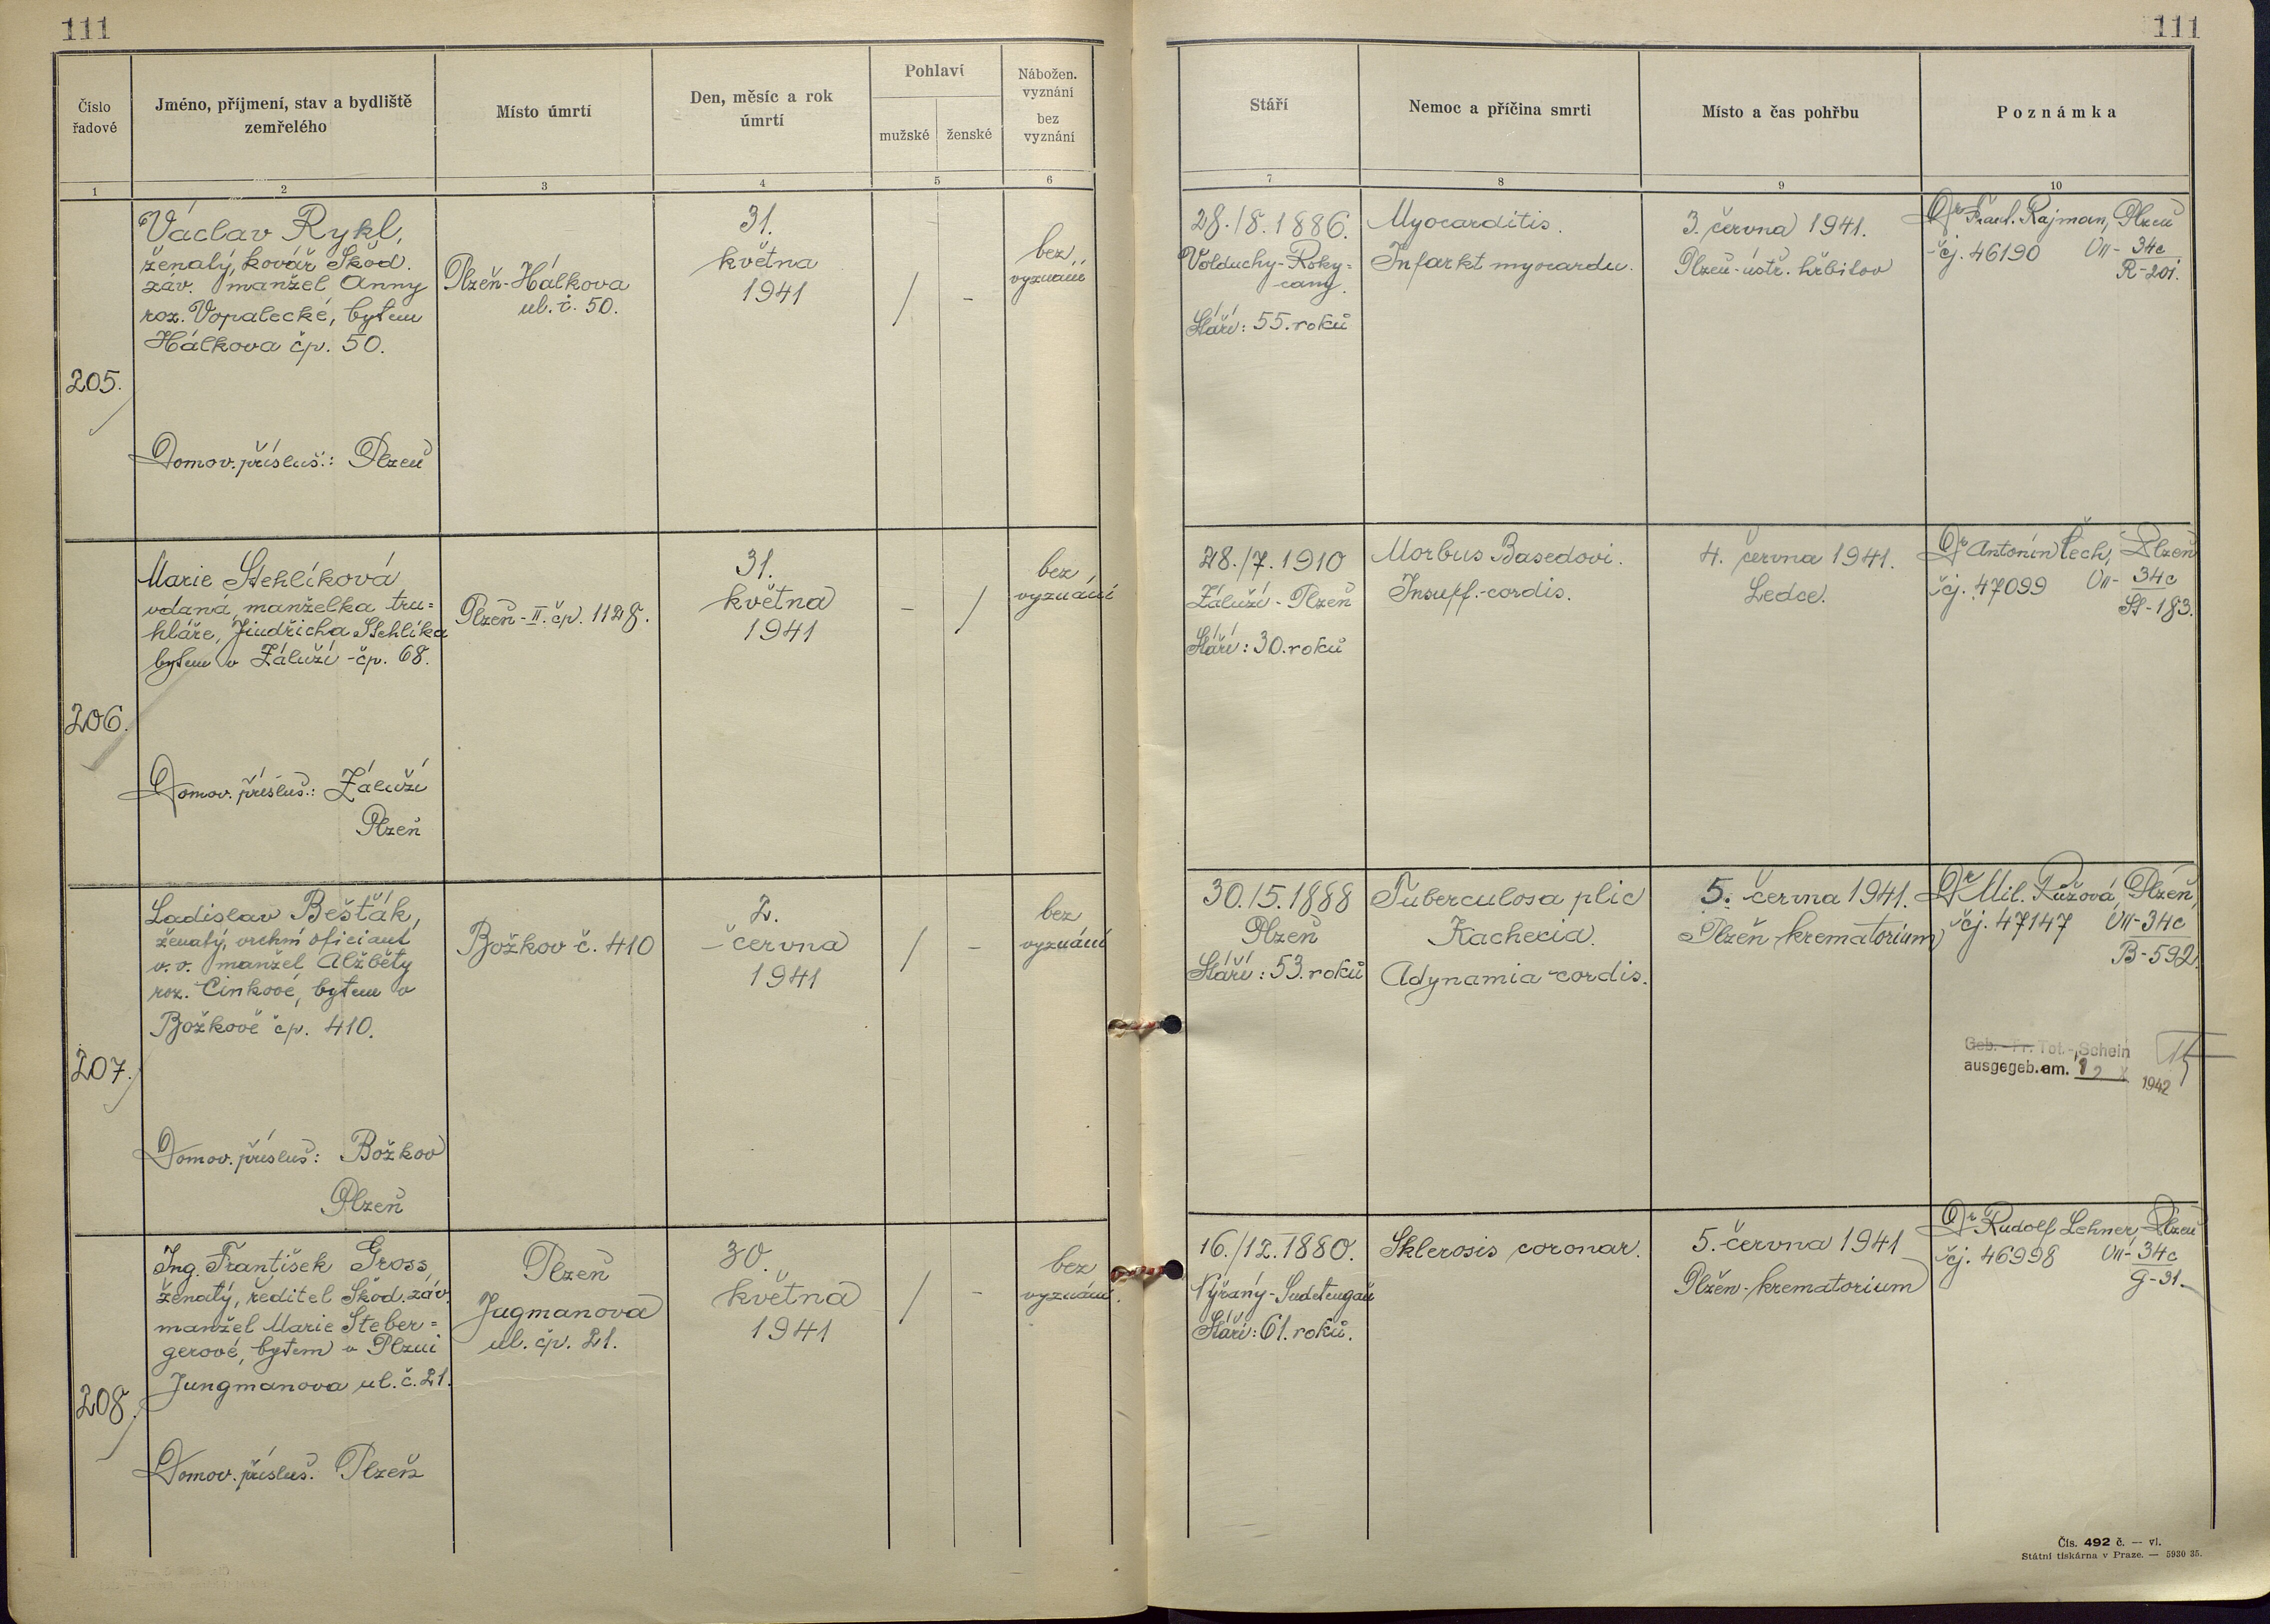 111
111
Číslo
řadové
Jméno, příjmení, stav a bydliště
zemřelého
Místo úmrtí
Den, měsíc a rok
úmrtí
Pohlaví
mužské
ženské
Nábožen.
vyznání
bez
vyznání
Stáří
Nemoc a příčina smrti
Místo a čas pohřbu
Poznámka
1
2
3
4
5
6
7
8
9
10
205.
Václav Rykl,
ženatý, kovář Škod.
záv. manžel Anny
roz. Vopalecké, bytem
Hálkova čp. 50.
Domov. přísluš.: Plzeň
Plzeň-Hálkova
ul. č. 50.
31.
května
1941
/
-
bez
vyznání
28./8. 1886.
Volduchy-Roky-
cany.
Stáří: 55. roků
Myocarditis.
Infarkt myocardu.
3. června 1941.
Plzeň-ústř. hřbitov
Dr Frant. Rajman, Plzeň
čj. 46190 VII-34c
R-201.
206.
Marie Stehlíková
vdaná, manželka tru=
hláře, Jindřicha Stehlíka
bytem v Záluží-čp. 68.
Domov. přísluš.: Záluží
Plzeň
Plzeň-II. čp. 1128.
31.
května
1941
-
/
bez
vyznání
28./7. 1910
Záluží-Plzeň
Stáří: 30. roků
Morbus Basedovi.
Insuff.-cordis.
4. června 1941.
Ledce.
Dr Antonín Čech, Plzeň
čj. 47099 VII-34c
St-183.
207.
Ladislav Bešťák,
ženatý, vrchní oficiant
v. v. manžel Alžběty
roz. Cinkové, bytem v
Božkově čp. 410.
Domov. přísluš: Božkov
Plzeň
Božkov č. 410
2.
června
1941
/
-
bez
vyznání
30./5. 1888
Plzeň
Stáří: 53. roků
Tuberculosa plic
Kachecia.
Adynamia cordis.
5. června 1941.
Plzeň-krematorium
Dr Mil. Růžová, Plzeň,
čj. 47147 VII-34c
B-592.
Geb.-Tr. Tot.-Schein
ausgegeb. am. 1942
208.
Ing. František Gross,
ženatý, ředitel Škod. záv.
manžel Marie Steber=
gerové, bytem v Plzni
Jungmanova ul. č. 21.
Domov. přísluš. Plzeň
Plzeň
Jugmanova
ul. čp. 21.
30.
května
1941
/
-
bez
vyznání.
16./12. 1880.
Nýřany-Sudetengau
Stáří: 61. roků.
Sklerosis coronar.
5. června 1941
Plzeň-krematorium
Dr Rudolf Lehner, Plzeň
čj. 46998 VII-34c
G-31
Čís. 492 č. — vl.
Státní tiskárna v Praze. — 5930 35.